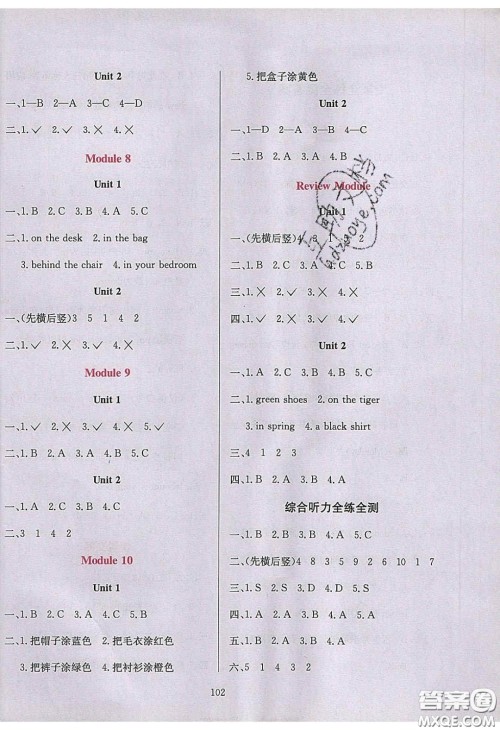 Unit 2
一、1—B 2—A 3—C 4—D
二、1.✓ 2.✓ 3.✗ 4.✗
Module 8
Unit 1
一、1.B 2.C 3.C 4.B
二、1. on the desk 2. in the bag
3. behind the chair 4. in your bedroom
Unit 2
一、(先横后竖)3 5 1 4 2
二、1.✓ 2.✗ 3.✗ 4.✓
Module 9
Unit 1
一、1.✓ 2.✓ 3.✗ 4.✗ 5.✓
二、1.B 2.B 3.A 4.B
Unit 2
一、1.A 2.C 3.A 4.B
二、3 1 4 2
Module 10
Unit 1
一、1.B 2.B 3.A 4.C 5.A
二、1.把帽子涂蓝色 2.把毛衣涂红色
3.把裤子涂绿色 4.把衬衫涂橙色
5.把盒子涂黄色
Unit 2
一、1—D 2—A 3—B 4—C
二、1.B 2.A 3.B 4.B
Review Module
Unit 1
一、(先横后竖)4 3 1 2
二、1.B 2.C 3.A
三、1.✗ 2.✗ 3.✓ 4.✓
四、1.✗ 2.✓ 3.✓ 4.✗
Unit 2
一、1.B 2.C 3.A 4.B 5.A
二、1. green shoes 2. on the tiger
3. in spring 4. a black shirt
三、4 1 2 3
四、1.A 2.B 3.B 4.A
综合听力全练全测
一、1.B 2.C 3.C 4.A 5.A
二、(先横后竖)4 8 3 5 9 2 6 10 1 7
三、1.S 2.S 3.D 4.D 5.S
四、1.C 2.D 3.A 4.B
五、1.B 2.A 3.B 4.A 5.B
六、5 1 4 3 2
102
答案圈
MXQE.COM